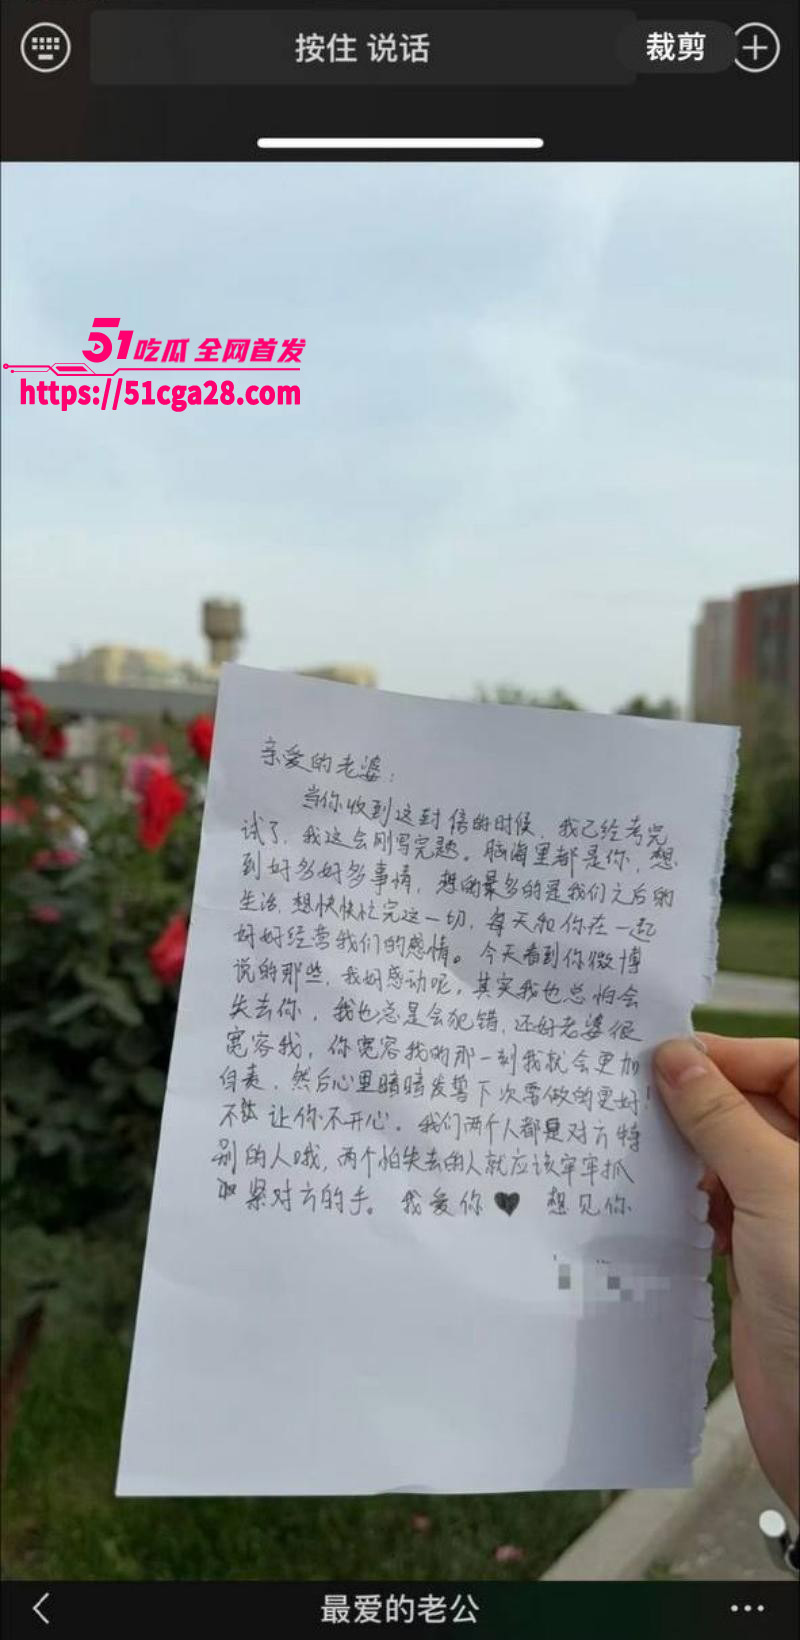 按住 说话
裁剪
51吃瓜 全网首发
https://51cga28.com
亲爱的老婆：
当你收到这封信的时候，我已经考完
试了，我这会刚写完题。脑海里都是你，想
到好多好多事情，想的最多的是我们之后的
生活，想快快忙完这一切，每天和你在一起
好好经营我们的感情。今天看到你微博
说的那些，我好感动呢，其实我也总怕会
失去你，我也总是会犯错，还好老婆很
宽容我，你宽容我的那一刻我就会更加
自责，然后心里暗暗发誓下次要做的更好！
不能让你不开心。我们两个人都是对方特
别的人哦，两个怕失去的人就应该牢牢抓
紧对方的手。我爱你♥ 想见你
最爱的老公